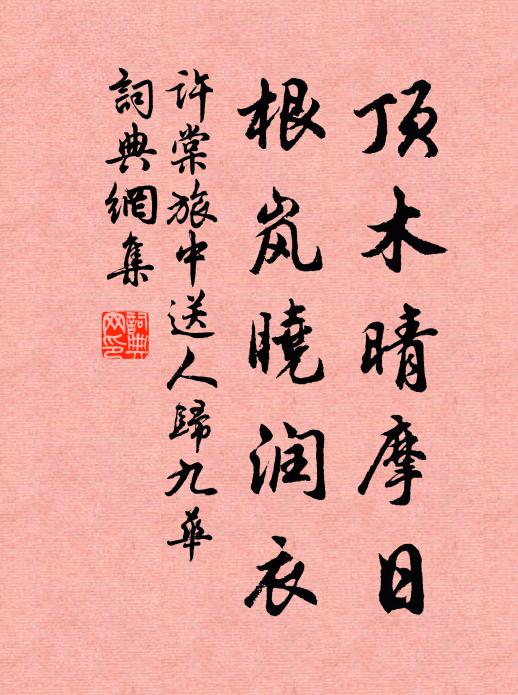 顶木晴摩日
根岚曉润衣
许棠旅中送人歸九華
詞典網集
詞典网印